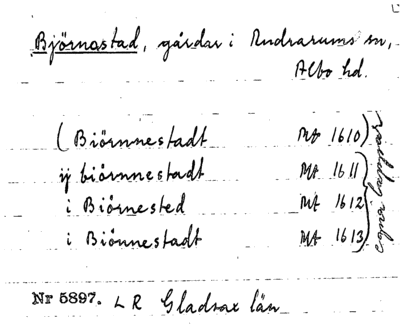 Björnastad, gårdar i Andrarums sn,
Albo hd.
(Biörnnestadt Mt 1610)
ij biörnnestadt Mt 1611
i Biörnested Mt 1612
i Biönnestadt Mt 1613
Nr 5897. L R Gladsax län